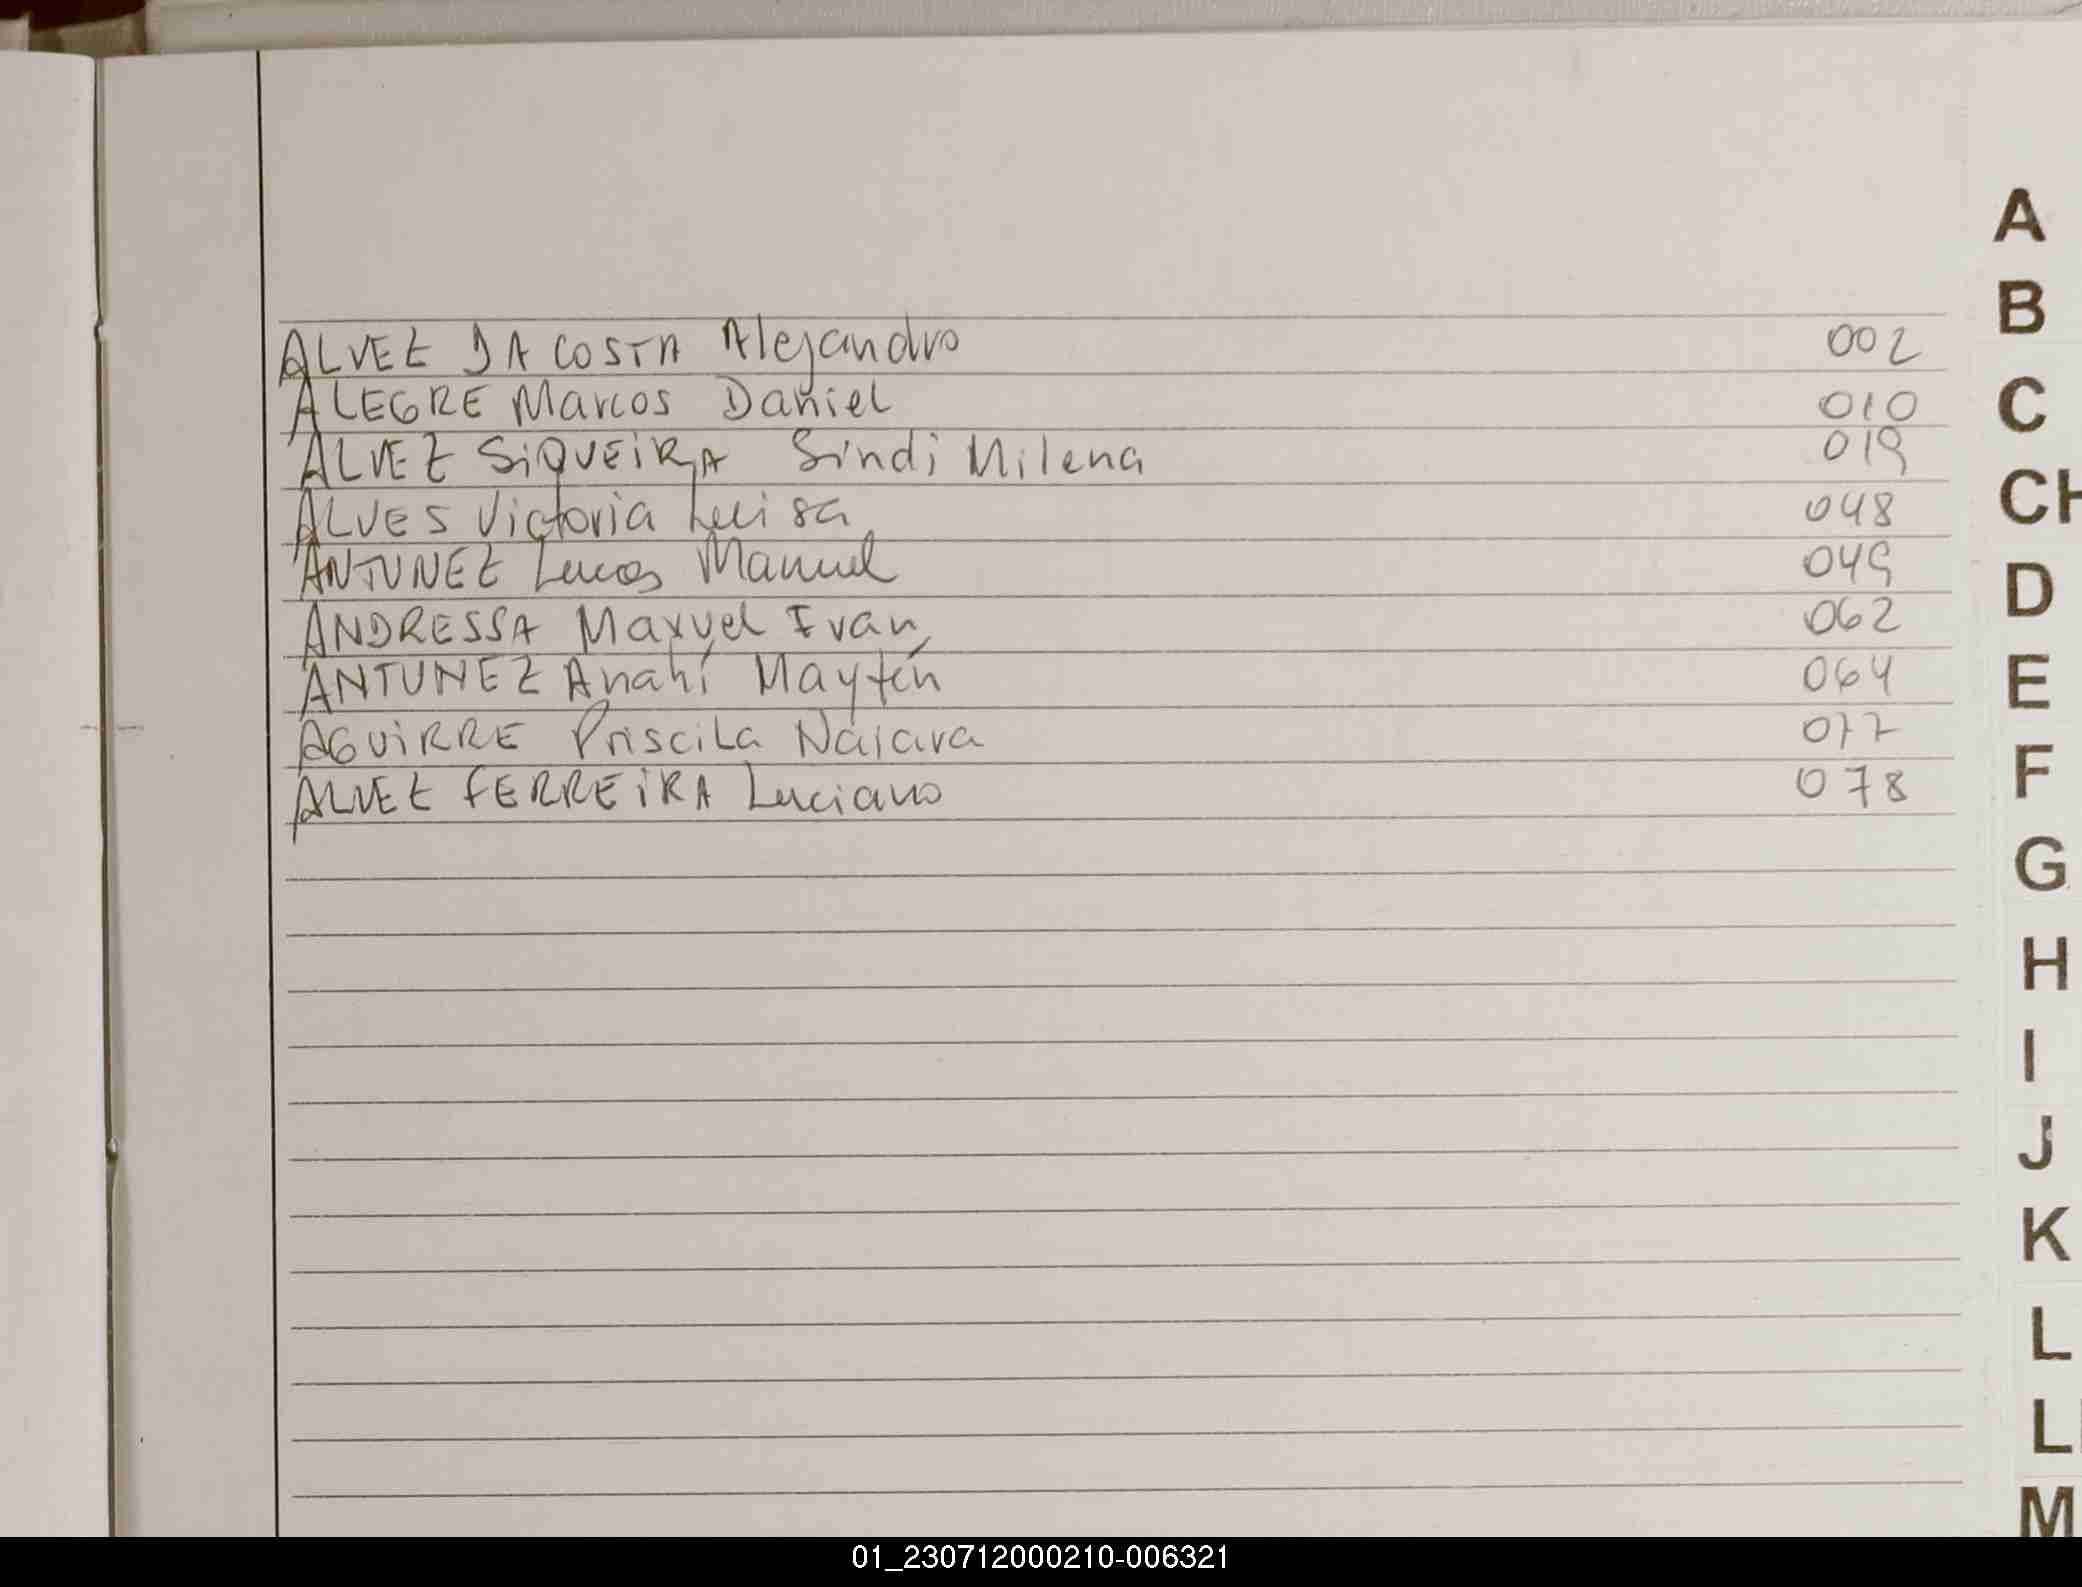 A
B
ALVEZ DA COSTA Alejandro 002
ALEGRE Marcos Daniel 010
C
ALVEZ SiQUEiRA Sindi Milena 019
ALVES Victoria Luisa 048
CH
ANTUNEZ Lucas Manuel 049
D
ANDRESSA Maxuel Ivan 062
ANTUNEZ Anahí Maytén 064
E
AGUiRRE Priscila Naiara 077
ALVEZ FERREiRA Luciano 078
F
G
H
I
J
K
L
LL
M
01_230712000210-006321